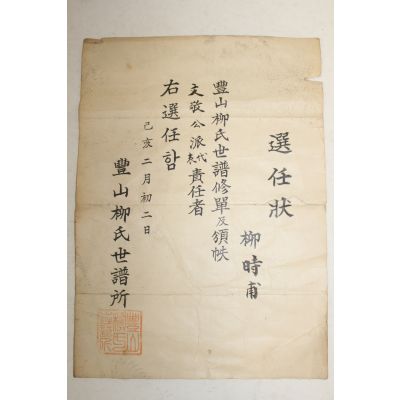 選任狀
柳時甫
豐山柳氏世譜修單及領帙
文敬公派代表責任者
右選任함
己亥二月初二日
豐山柳氏世譜所